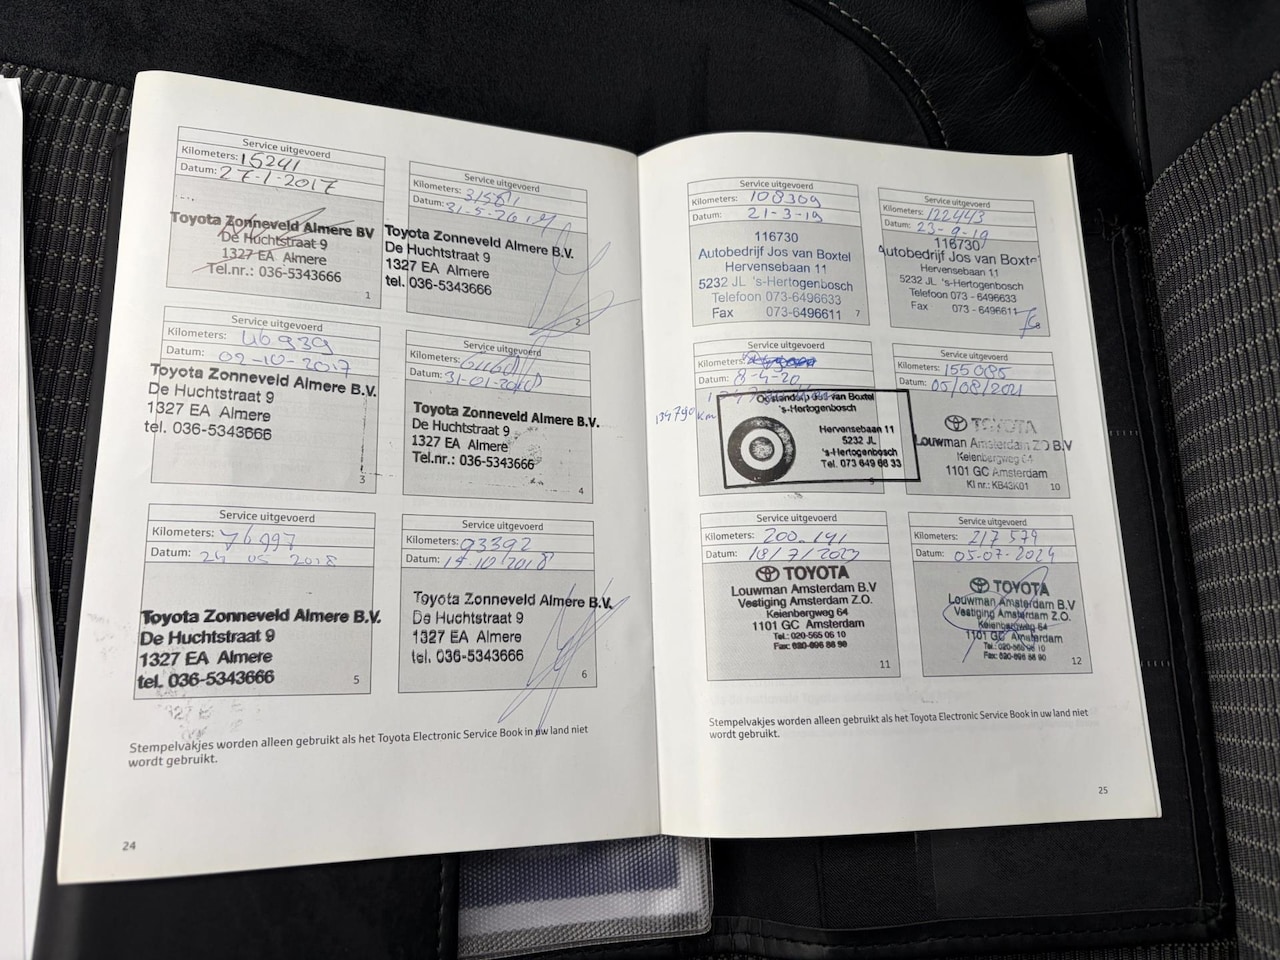 Service uitgevoerd
Kilometers: 15241
Datum: 27-1-2017
Toyota Zonneveld Almere BV
De Huchtstraat 9
1327 EA Almere
Tel.nr.: 036-5343666
1
Service uitgevoerd
Kilometers:
Datum: 31-5-2017
Toyota Zonneveld Almere B.V.
De Huchtstraat 9
1327 EA Almere
tel. 036-5343666
2
Service uitgevoerd
Kilometers: 46939
Datum: 02-10-2017
Toyota Zonneveld Almere B.V.
De Huchtstraat 9
1327 EA Almere
tel. 036-5343666
3
Service uitgevoerd
Kilometers:
Datum: 31-01-2018
Toyota Zonneveld Almere B.V.
De Huchtstraat 9
1327 EA Almere
Tel.nr.: 036-5343666
4
Service uitgevoerd
Kilometers: 76997
Datum: 24 05 2018
Toyota Zonneveld Almere B.V.
De Huchtstraat 9
1327 EA Almere
tel. 036-5343666
5
Service uitgevoerd
Kilometers: 93392
Datum: 17-10-2018
Toyota Zonneveld Almere B.V.
De Huchtstraat 9
1327 EA Almere
tel. 036-5343666
6
Stempelvakjes worden alleen gebruikt als het Toyota Electronic Service Book in uw land niet
wordt gebruikt.
24
Service uitgevoerd
Kilometers: 108309
Datum: 21-3-19
116730
Autobedrijf Jos van Boxtel
Hervensebaan 11
5232 JL 's-Hertogenbosch
Telefoon 073-6496633
Fax 073-6496611
7
Service uitgevoerd
Kilometers: 122443
Datum: 23-9-19
116730
Autobedrijf Jos van Boxtel
Hervensebaan 11
5232 JL 's-Hertogenbosch
Telefoon 073 - 6496633
Fax 073 - 6496611
8
Service uitgevoerd
Kilometers:
Datum: 8-4-20
134790 km
van Boxtel
's-Hertogenbosch
Hervensebaan 11
5232 JL
's-Hertogenbosch
Tel. 073 649 66 33
9
Service uitgevoerd
Kilometers: 155085
Datum: 05/08/2021
TOYOTA
Louwman Amsterdam ZO B.V
Keienbergweg 64
1101 GC Amsterdam
Kl nr.: KB43K01
10
Service uitgevoerd
Kilometers: 200.141
Datum: 18/7/2023
TOYOTA
Louwman Amsterdam B.V
Vestiging Amsterdam Z.O.
Keienbergweg 64
1101 GC Amsterdam
Tel.: 020-565 06 10
Fax: 020-696 88 90
11
Service uitgevoerd
Kilometers: 217 579
Datum: 05-07-2024
TOYOTA
Louwman Amsterdam B.V
Vestiging Amsterdam Z.O.
Keienbergweg 64
1101 GC Amsterdam
Fax: 020-696 88 90
12
Stempelvakjes worden alleen gebruikt als het Toyota Electronic Service Book in uw land niet
wordt gebruikt.
25